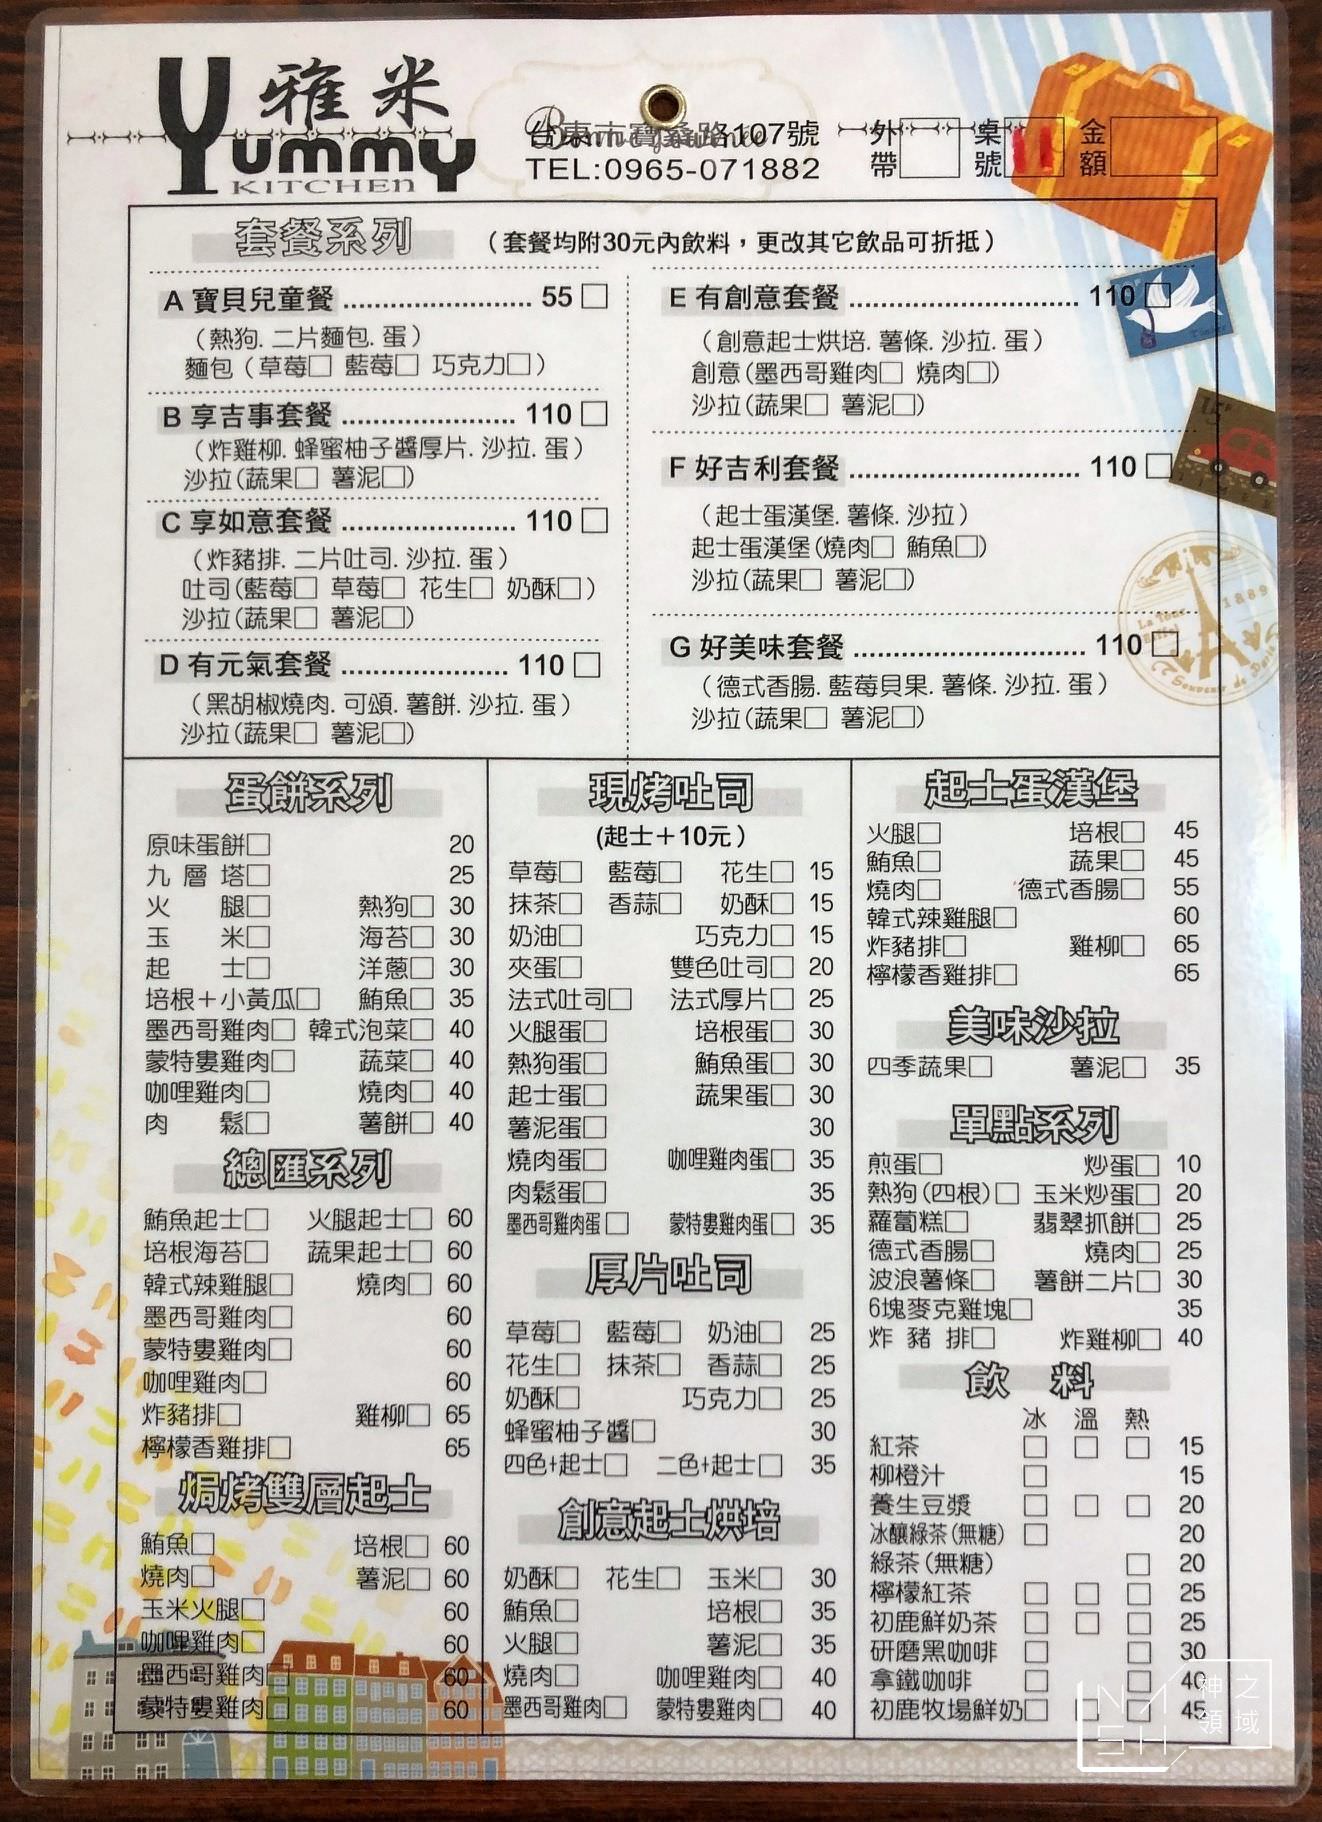 雅米
Yummy
KITCHEN
台東市寶桑路107號
TEL:0965-071882
外帶□ 桌號 11 金額
套餐系列 (套餐均附30元內飲料,更改其它飲品可折抵)
A 寶貝兒童餐 55 □
(熱狗. 二片麵包. 蛋)
麵包(草莓□ 藍莓□ 巧克力□)
B 享吉事套餐 110 □
(炸雞柳. 蜂蜜柚子醬厚片. 沙拉. 蛋)
沙拉(蔬果□ 薯泥□)
C 享如意套餐 110 □
(炸豬排. 二片吐司. 沙拉. 蛋)
吐司(藍莓□ 草莓□ 花生□ 奶酥□)
沙拉(蔬果□ 薯泥□)
D 有元氣套餐 110 □
(黑胡椒燒肉. 可頌. 薯餅. 沙拉. 蛋)
沙拉(蔬果□ 薯泥□)
E 有創意套餐 110 □
(創意起士烘培. 薯條. 沙拉. 蛋)
創意(墨西哥雞肉□ 燒肉□)
沙拉(蔬果□ 薯泥□)
F 好吉利套餐 110 □
(起士蛋漢堡. 薯條. 沙拉)
起士蛋漢堡(燒肉□ 鮪魚□)
沙拉(蔬果□ 薯泥□)
G 好美味套餐 110 □
(德式香腸. 藍莓貝果. 薯條. 沙拉. 蛋)
沙拉(蔬果□ 薯泥□)
1889
蛋餅系列
原味蛋餅□ 20
九層塔□ 25
火腿□ 熱狗□ 30
玉米□ 海苔□ 30
起士□ 洋蔥□ 30
培根+小黃瓜□ 鮪魚□ 35
墨西哥雞肉□ 韓式泡菜□ 40
蒙特婁雞肉□ 蔬菜□ 40
咖哩雞肉□ 燒肉□ 40
肉鬆□ 薯餅□ 40
總匯系列
鮪魚起士□ 火腿起士□ 60
培根海苔□ 蔬果起士□ 60
韓式辣雞腿□ 燒肉□ 60
墨西哥雞肉□ 60
蒙特婁雞肉□ 60
咖哩雞肉□ 60
炸豬排□ 雞柳□ 65
檸檬香雞排□ 65
焗烤雙層起士
鮪魚□ 培根□ 60
燒肉□ 薯泥□ 60
玉米火腿□ 60
咖哩雞肉□ 60
墨西哥雞肉□ 60
蒙特婁雞肉□ 60
現烤吐司
(起士+10元)
草莓□ 藍莓□ 花生□ 15
抹茶□ 香蒜□ 奶酥□ 15
奶油□ 巧克力□ 15
夾蛋□ 雙色吐司□ 20
法式吐司□ 法式厚片□ 25
火腿蛋□ 培根蛋□ 30
熱狗蛋□ 鮪魚蛋□ 30
起士蛋□ 蔬果蛋□ 30
薯泥蛋□ 30
燒肉蛋□ 咖哩雞肉蛋□ 35
肉鬆蛋□ 35
墨西哥雞肉蛋□ 蒙特婁雞肉蛋□ 35
厚片吐司
草莓□ 藍莓□ 奶油□ 25
花生□ 抹茶□ 香蒜□ 25
奶酥□ 巧克力□ 25
蜂蜜柚子醬□ 30
四色+起士□ 二色+起士□ 35
創意起士烘培
奶酥□ 花生□ 玉米□ 30
鮪魚□ 培根□ 35
火腿□ 薯泥□ 35
燒肉□ 咖哩雞肉□ 40
墨西哥雞肉□ 蒙特婁雞肉□ 40
起士蛋漢堡
火腿□ 培根□ 45
鮪魚□ 蔬果□ 45
燒肉□ 德式香腸□ 55
韓式辣雞腿□ 60
炸豬排□ 雞柳□ 65
檸檬香雞排□ 65
美味沙拉
四季蔬果□ 薯泥□ 35
單點系列
煎蛋□ 炒蛋□ 10
熱狗(四根)□ 玉米炒蛋□ 20
蘿蔔糕□ 翡翠抓餅□ 25
德式香腸□ 燒肉□ 25
波浪薯條□ 薯餅二片□ 30
6塊麥克雞塊□ 35
炸豬排□ 炸雞柳□ 40
飲料
冰 溫 熱
紅茶 □ □ □ 15
柳橙汁 □ 15
養生豆漿 □ □ □ 20
冰釀綠茶(無糖) □ 20
綠茶(無糖) □ 20
檸檬紅茶 □ □ □ 25
初鹿鮮奶茶 □ □ □ 25
研磨黑咖啡 □ □ 30
拿鐵咖啡 □ □ 40
初鹿牧場鮮奶□ □ 45
神之領域